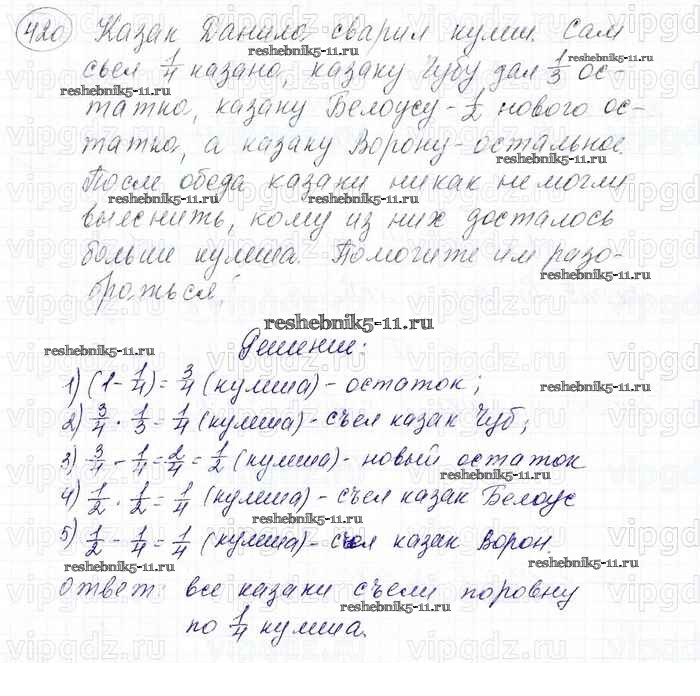 420 Казак Данило сварил кулиш. Сам
съел 1/4 казана, казаку Чубу дал 1/3 ос-
татка, казаку Белоусу - 1/2 нового ос-
татка, а казаку Ворону - остальное.
После обеда казаки никак не могли
выяснить, кому из них досталось
больше кулиша. Помогите им разо-
браться!
reshebnik5-11.ru
Решение:
1) (1 - 1/4) = 3/4 (кулиша) - остаток;
2) 3/4 · 1/3 = 1/4 (кулиша) - съел казак Чуб;
3) 3/4 - 1/4 = 2/4 = 1/2 (кулиша) - новый остаток
4) 1/2 · 1/2 = 1/4 (кулиша) - съел казак Белоус
5) 1/2 - 1/4 = 1/4 (кулиша) - съел казак Ворон.
Ответ: все казаки съели поровну
по 1/4 кулиша.
vipgdz.ru